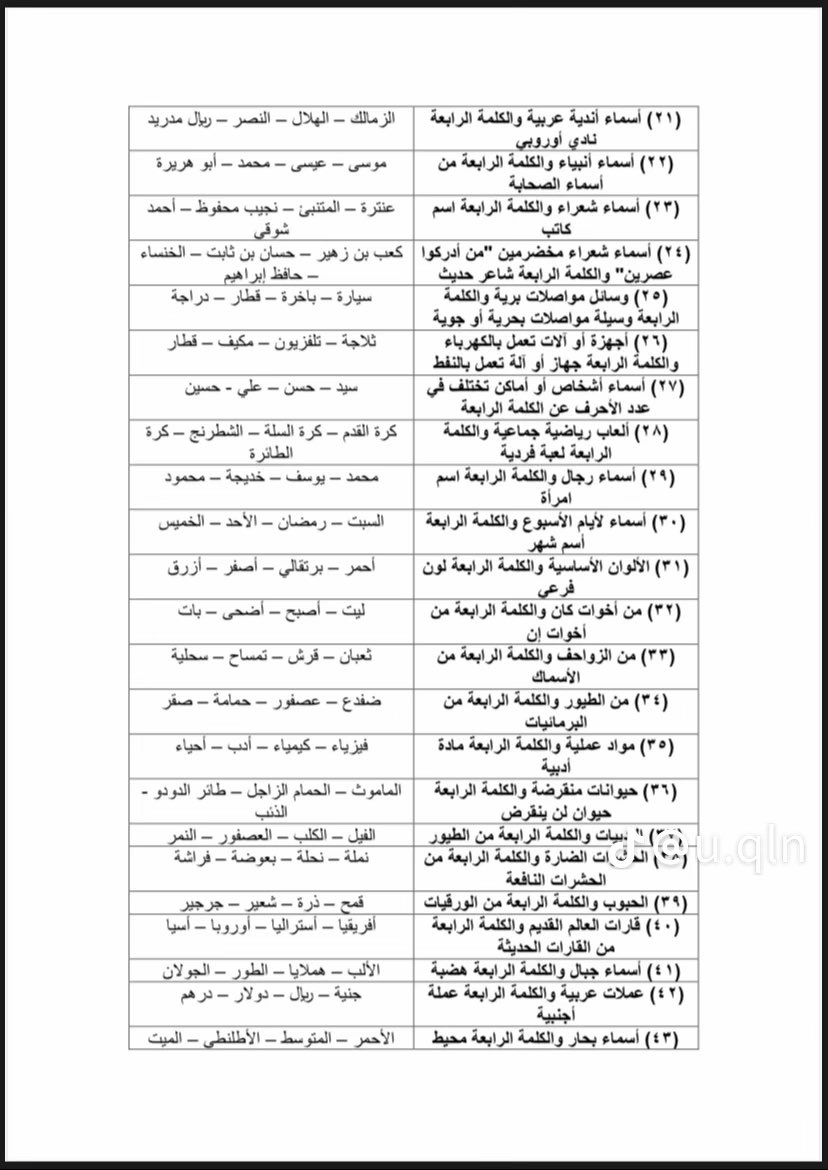 (٢١) أسماء أندية عربية والكلمة الرابعة
نادي أوروبي
الزمالك – الهلال – النصر – ريال مدريد
(٢٢) أسماء أنبياء والكلمة الرابعة من
أسماء الصحابة
موسى – عيسى – محمد – أبو هريرة
(٢٣) أسماء شعراء والكلمة الرابعة اسم
كاتب
عنترة – المتنبئ – نجيب محفوظ – أحمد
شوقي
(٢٤) أسماء شعراء مخضرمين "من أدركوا
عصرين" والكلمة الرابعة شاعر حديث
كعب بن زهير – حسان بن ثابت – الخنساء
– حافظ إبراهيم
(٢٥) وسائل مواصلات برية والكلمة
الرابعة وسيلة مواصلات بحرية أو جوية
سيارة – باخرة – قطار – دراجة
(٢٦) أجهزة أو آلات تعمل بالكهرباء
والكلمة الرابعة جهاز أو آلة تعمل بالنفط
ثلاجة – تلفزيون – مكيف – قطار
(٢٧) أسماء أشخاص أو أماكن تختلف في
عدد الأحرف عن الكلمة الرابعة
سيد – حسن – علي - حسين
(٢٨) ألعاب رياضية جماعية والكلمة
الرابعة لعبة فردية
كرة القدم – كرة السلة – الشطرنج – كرة
الطائرة
(٢٩) أسماء رجال والكلمة الرابعة اسم
امرأة
محمد – يوسف – خديجة – محمود
(٣٠) أسماء لأيام الأسبوع والكلمة الرابعة
أسم شهر
السبت – رمضان – الأحد – الخميس
(٣١) الألوان الأساسية والكلمة الرابعة لون
فرعي
أحمر – برتقالي – أصفر – أزرق
(٣٢) من أخوات كان والكلمة الرابعة من
أخوات إن
ليت – أصبح – أضحى – بات
(٣٣) من الزواحف والكلمة الرابعة من
الأسماك
ثعبان – قرش – تمساح – سحلية
(٣٤) من الطيور والكلمة الرابعة من
البرمائيات
ضفدع – عصفور – حمامة – صقر
(٣٥) مواد عملية والكلمة الرابعة مادة
أدبية
فيزياء – كيمياء – أدب – أحياء
(٣٦) حيوانات منقرضة والكلمة الرابعة
حيوان لن ينقرض
الماموث – الحمام الزاجل – طائر الدودو -
الذئب
والكلمة الرابعة من الطيور
الفيل – الكلب – العصفور – النمر
الضارة والكلمة الرابعة من
الحشرات النافعة
نملة – نحلة – بعوضة – فراشة
(٣٩) الحبوب والكلمة الرابعة من الورقيات
قمح – ذرة – شعير – جرجير
(٤٠) قارات العالم القديم والكلمة الرابعة
من القارات الحديثة
أفريقيا – أستراليا – أوروبا – أسيا
(٤١) أسماء جبال والكلمة الرابعة هضبة
الألب – هملايا – الطور – الجولان
(٤٢) عملات عربية والكلمة الرابعة عملة
أجنبية
جنية – ريال – دولار – درهم
(٤٣) أسماء بحار والكلمة الرابعة محيط
الأحمر – المتوسط – الأطلنطي – الميت
@u.qln